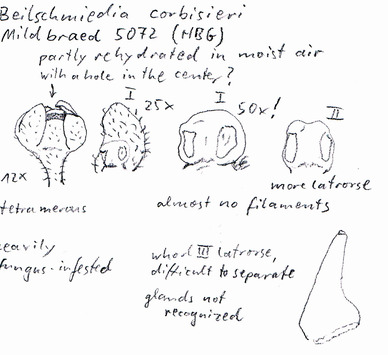 Beilschmiedia corbisieri
Mildbraed 5072 (HBG)
partly rehydrated in moist air
with a hole in the center?
I 25x I 50x! II
12x
more latrorse
tetramerous almost no filaments
eavily
fungus-infested
whorl III latrorse,
difficult to separate
glands not
recognized